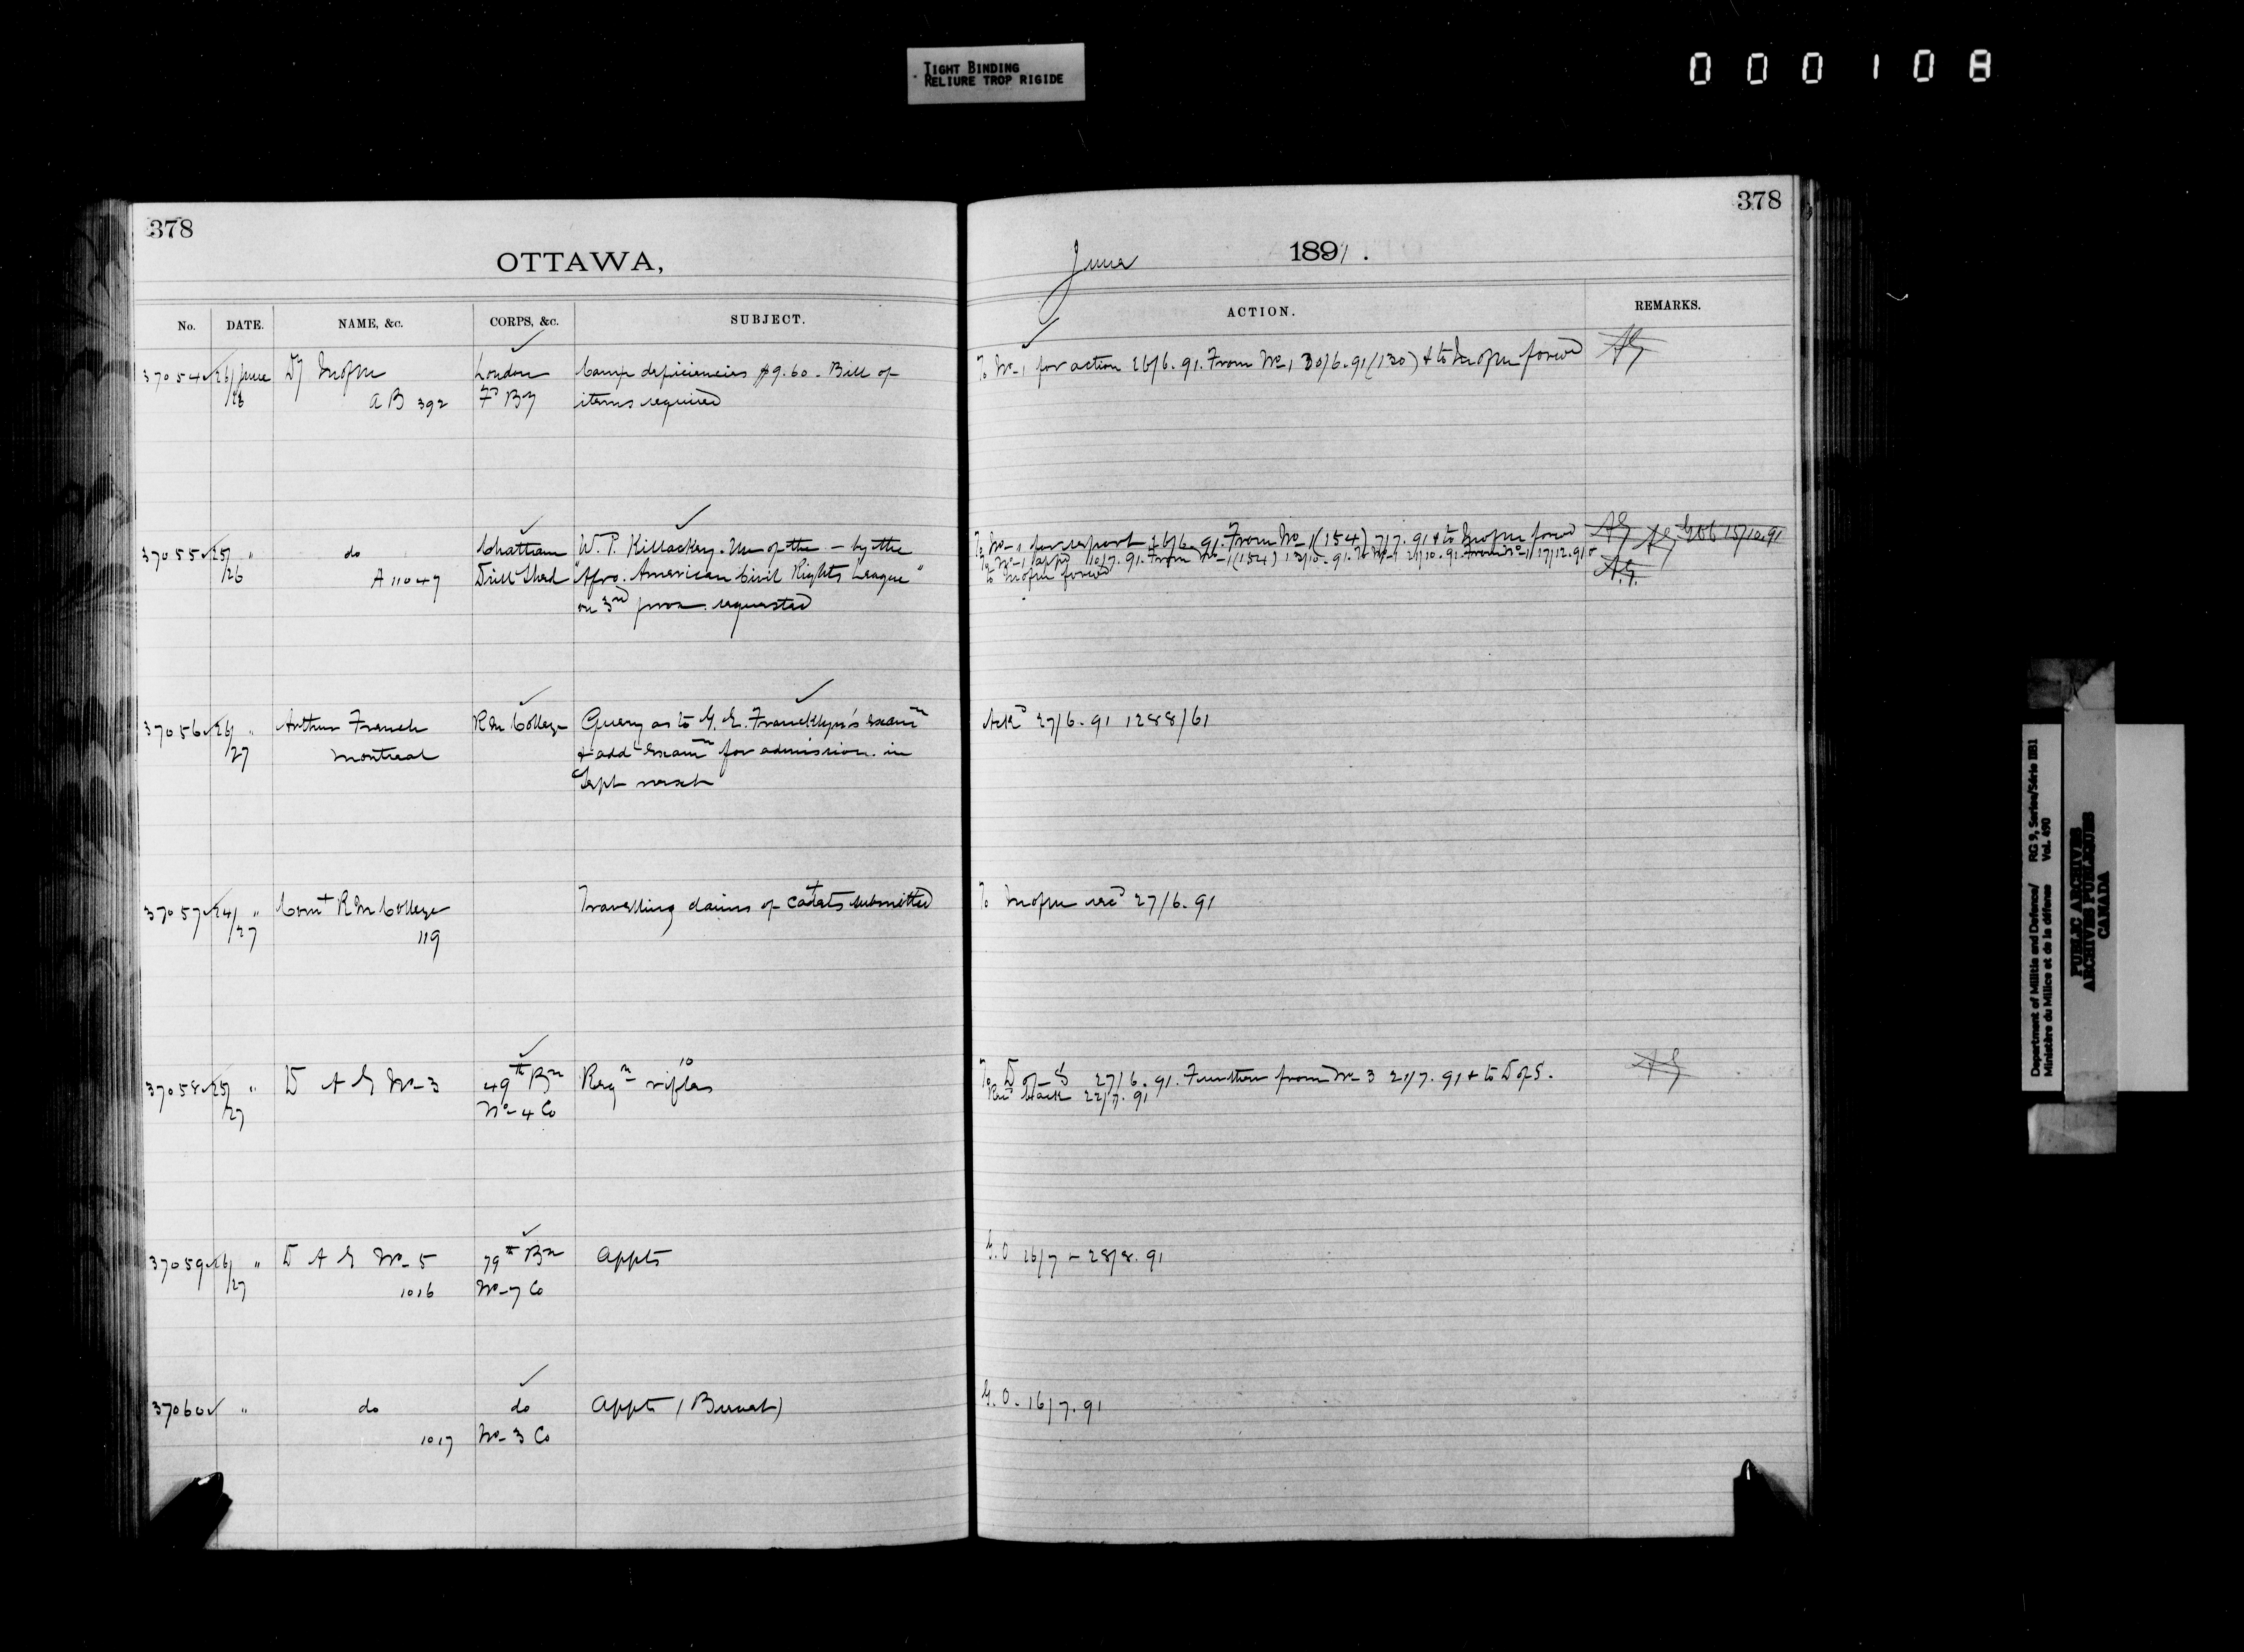 TIGHT BINDING
RELIURE TROP RIGIDE
000108
378
OTTAWA,
No. DATE. NAME, &C. CORPS, &C. SUBJECT.
37054 26/ June Dy London Camp deficiencies $9.60. Bill of
/26 A B 392 Fd By items required
37055 25/ " do Chatham W. P. Killackey. Use of the — by the
/26 A 11047 Drill Shed "Afro. American Civil Rights League"
on 3rd prox. requested
37056 26/ " Arthur French R M College Query as to G. E. Francklyn's Examn
/27 Montreal & add Examn for admission in
Sept next
37057 24/ " Comt R M College Travelling claims of cadets submitted
/27 119
37058 25/ " D A G No 3 49th Bn Reqn 10 rifles
/27 No 4 Co
37059 26/ " D A G No 5 79th Bn Appts
/27 1016 No 7 Co
37060 " do do Appts (Burnet)
1017 No 3 Co
378
June 1891.
ACTION. REMARKS.
To No 1 for action 26/6.91. From No 1 30/6.91 (130) & to forwd AG
To No 1 for report 26/6.91. From No 1 (154) 7/7.91 & to forwd AG AG 15/10.91
To No 1 appd 10/7.91. From No 1 (154) 13/10.91. To No 1 21/10.91. From No 1 17/12.91 &
to forwd A.G.
Ackd 27/6.91 1288/61
To recd 27/6.91
To D of S 27/6.91. Further from No 3 21/7.91 & to D of S. AG
Recd back 22/7.91
G.O 16/7 - 28/8.91
G.O. 16/7.91
Department of Militia and Defence/ RG 9, Series/Série IIB1
Ministère du Milice et de la défense Vol. 490
PUBLIC ARCHIVES
ARCHIVES PUBLIQUES
CANADA